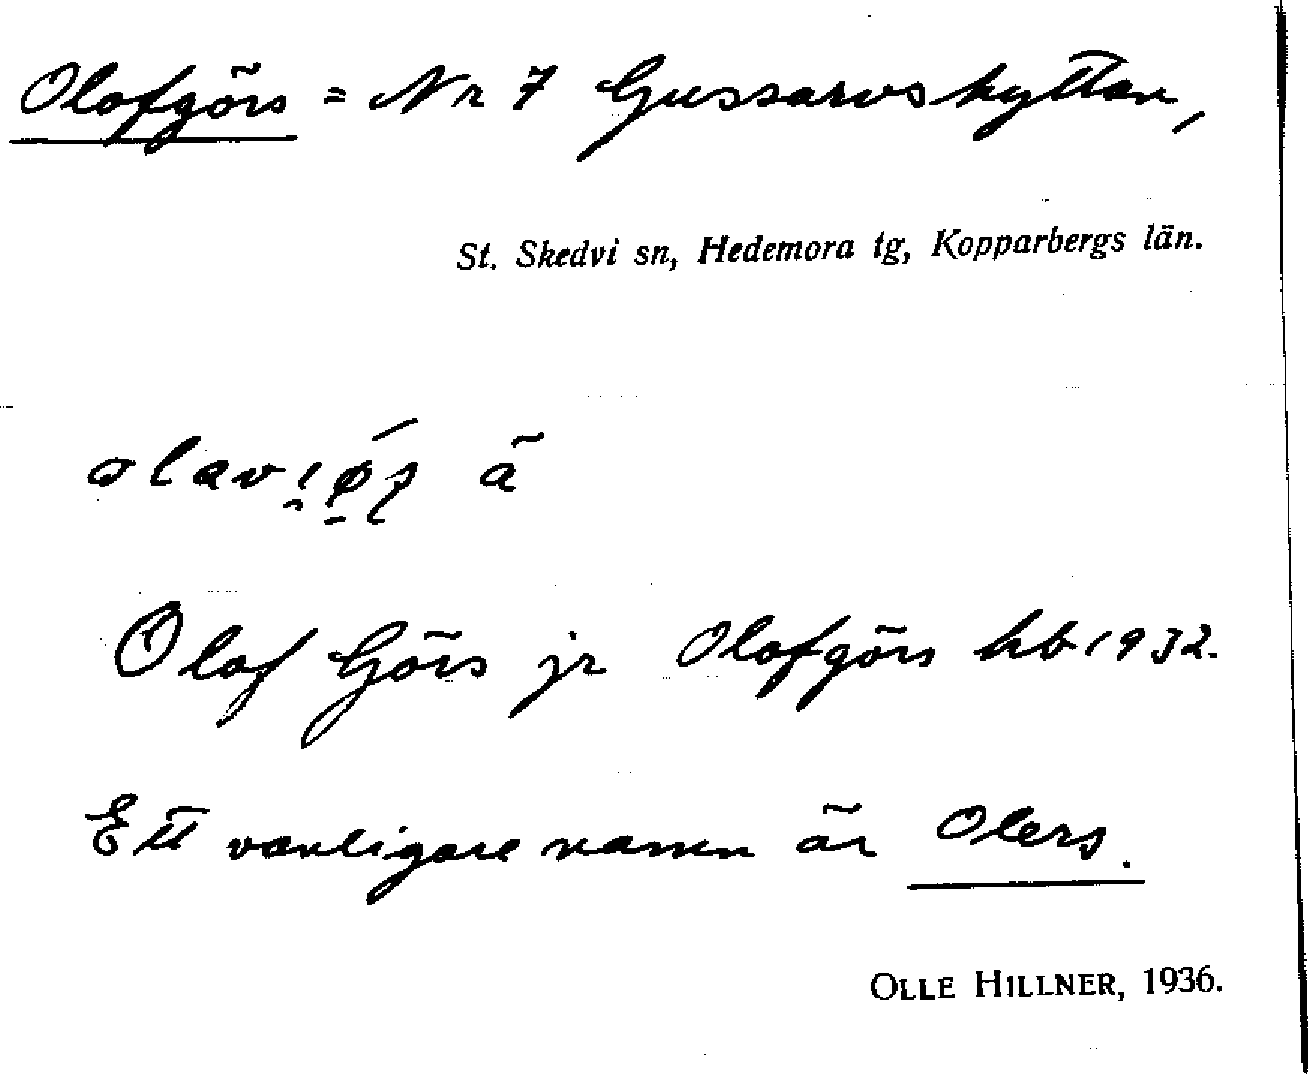 Olofgörs = Nr 7 Gussarvshyttan,
St. Skedvi sn, Hedemora tg, Kopparbergs län.
å
Olof Görs jr Olofgörs hb 1932.
Ett vanligare namn är Olers.
OLLE HILLNER, 1936.